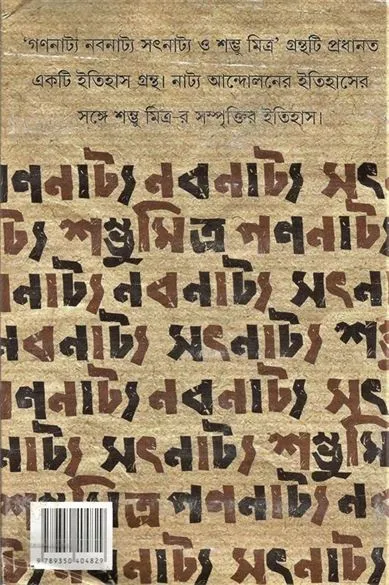 'গণনাট্য নবনাট্য সৎনাট্য ও শম্ভু মিত্র' গ্রন্থটি প্রধানত
একটি ইতিহাস গ্রন্থ। নাট্য আন্দোলনের ইতিহাসের
সঙ্গে শম্ভু মিত্র-র সম্পৃক্তির ইতিহাস।
ণনাট্য নবনাট্য সৎ
ট্য শম্ভু মিত্র গণনাট্য
নাট্য নবনাট্য সৎন
নবনাট্য সৎনাট্য শ
ণনাট্য নবনাট্য সৎ
ট্য সৎনাট্য শম্ভু মি
ম্ভু মিত্র গণনাট্য ন
নাট্য নবনাট্য
9 789350 404829